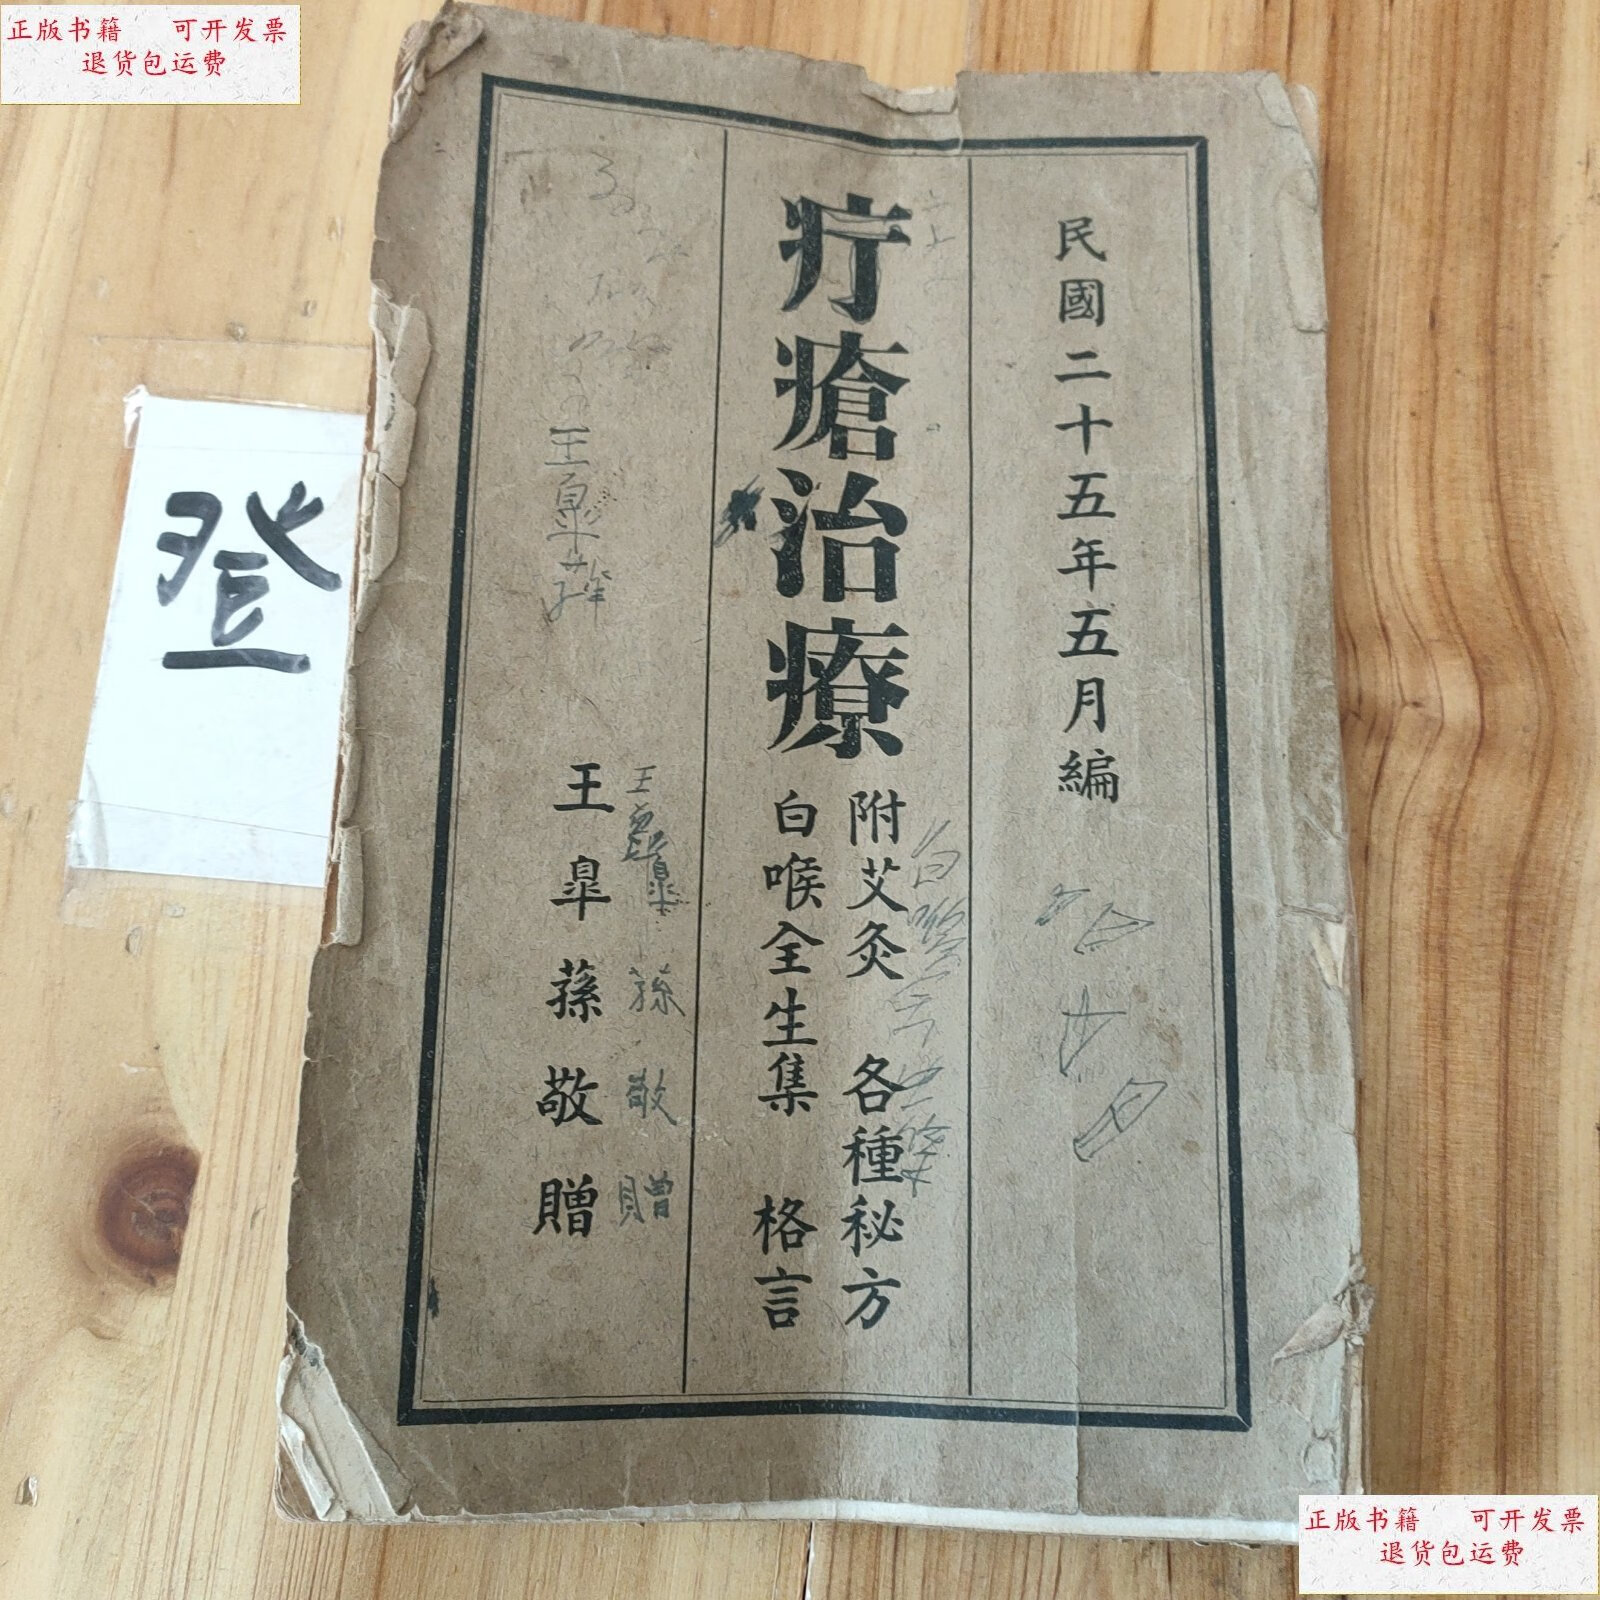 正版书籍 可开发票
退货包运费
民國二十五年五月編
疔瘡治療
附艾灸 各種秘方
白喉全生集 格言
王皐蓀敬贈
王皐蓀敬贈
登
正版书籍 可开发票
退货包运费